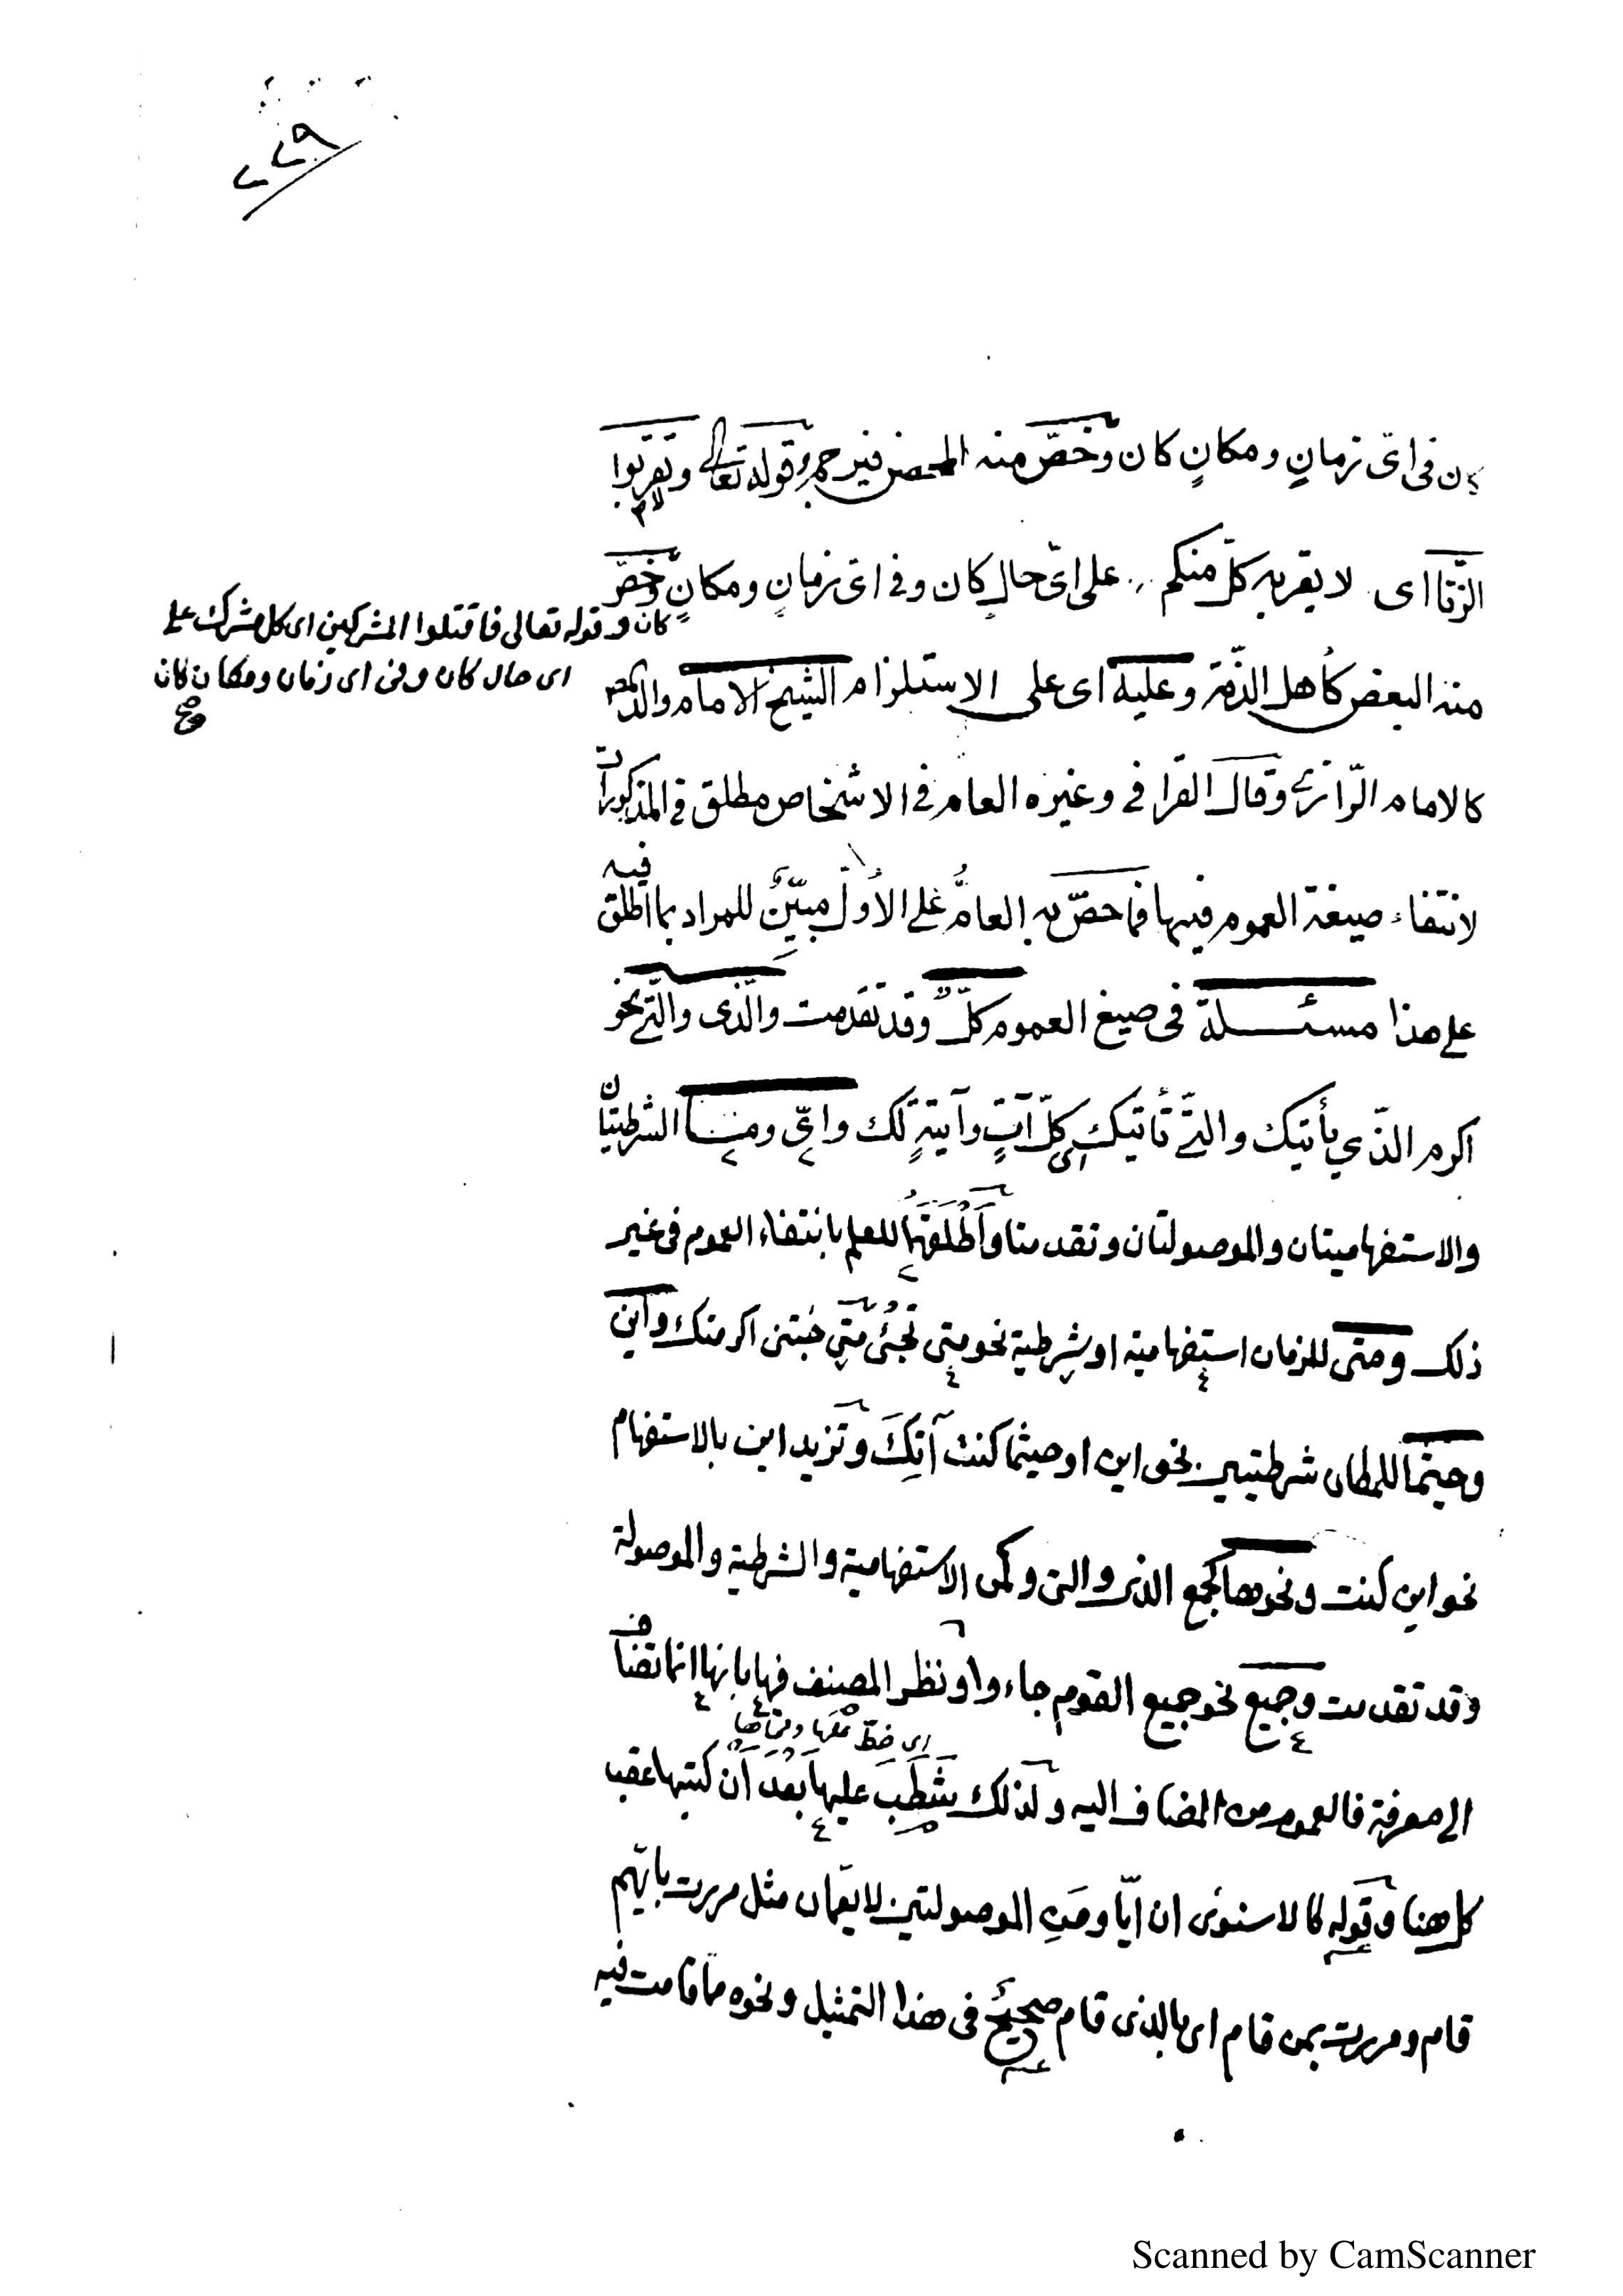 كان فى اىّ زمانٍ ومكانٍ كان وخصّ منه المحصن فيرجم وقوله تعالى ولا تقربوا
الزّنا اى لا يقربه كلّ منكم على اىّ حالٍ كان وفى اىّ زمانٍ ومكانٍ وخصّ
كان وقوله تعالى فاقتلوا المشركين اى كل مشرك على
اى حال كان وفى اى زمان ومكان كان
صح
منه البعض كأهل الذّمة وعليه اى على الاستلزام الشيخ الامام والد المص
كالامام الرّازى وقال القرافى وغيره العام فى الاشخاص مطلق فى المذكورات
لانتفاء صيغة العموم فيها فما خصّ به العامُّ على الأوّل مبيّنٌ للمراد بما اطلق فيه
على هذا مسئلة فى صيغ العموم كلٌّ وقد تقدّمت والّذى والّتى نحو
اكرم الذّي يأتيك والتّى تأتيك اى كلّ آتٍ وآتيةٍ لك واىّ وما الشرطيتان
والاستفهاميتان والموصولتان وتقدمتا وأطلقهما للعلم بانتفاء العموم فى غير
ذلك ومتى للزمان استفهامية او شرطية نحو متى تجئ متى جئتنى اكرمتك وأين
وحيثما للمكان شرطيتين نحو اين او حيثما كنت آتك وتزيد اين بالاستفهام
نحو اين كنت ونحوها كجمع الذى والتى وكمن الاستفهامية والشرطية والموصولة
وقد تقدمت وجميع نحو جميع القوم جاءوا ونظر المصنف فيها بانها انما تضاف
اى خطّ
الى معرفة فالعموم من المضاف اليه ولذلك شطب عليها بعد أن كتبها عقب
كل هنا وقوله كالاسنوى ان ايّا ومَن الموصولتين لا يعمّان مثل مررت بايّهم
قام ومررت بمن قام اى بالذى قام صحيحٌ فى هذا التمثيل ونحوه مما قامت فيه
Scanned by CamScanner